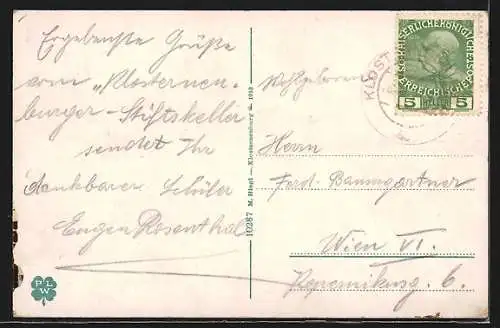 Ergebenste Grüße
vom „Klosterneu-
burger-Stiftskeller
sendet Ihr
dankbarer Schüler
Eugen Rosenthal
PLW
10287 M. Hingl - Klosterneuburg 1913
KLOST
KAISERLICHE KÖNIGLICHE
ÖSTERREICHISCHE
5 HELLER 5
Wohlgeboren
Herrn
Ferd. Baumgartner
Wien VI.
6.